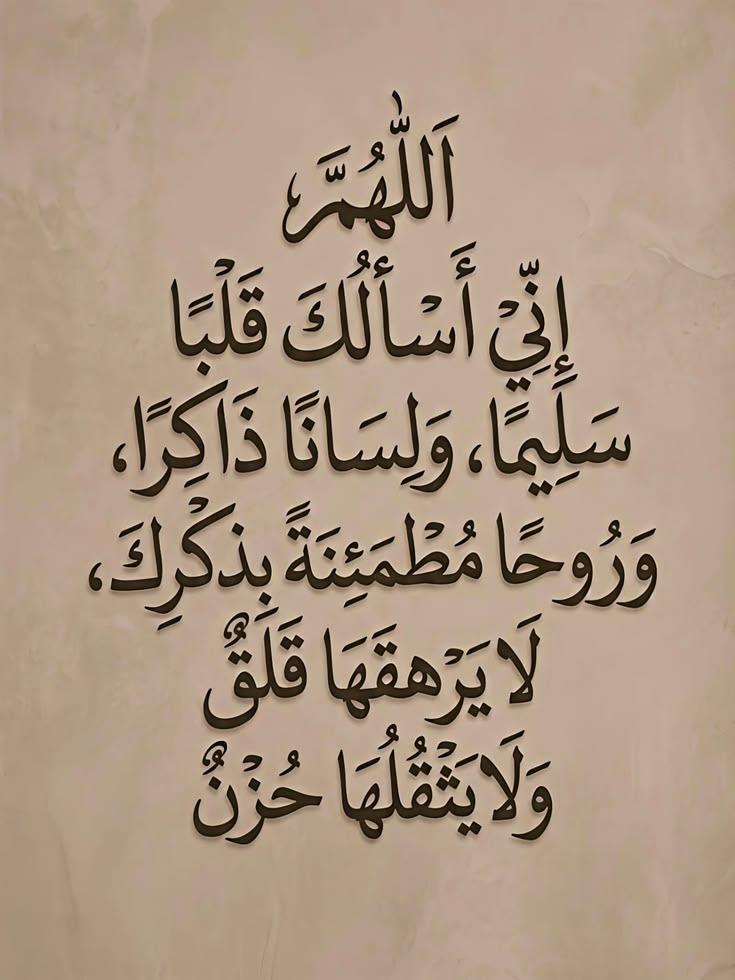 اَللّٰهُمَّ،
إِنِّيْ أَسْألُكَ قَلْبًا
سَلِيمًا، وَلِسَانًا ذَاكِرًا،
وَرُوحًا مُطْمَئِنَةً بِذكْرِكَ،
لَا يَرْهقَهَا قَلَقٌ
وَلَا يَثْقُلُهَا حُزْنٌ